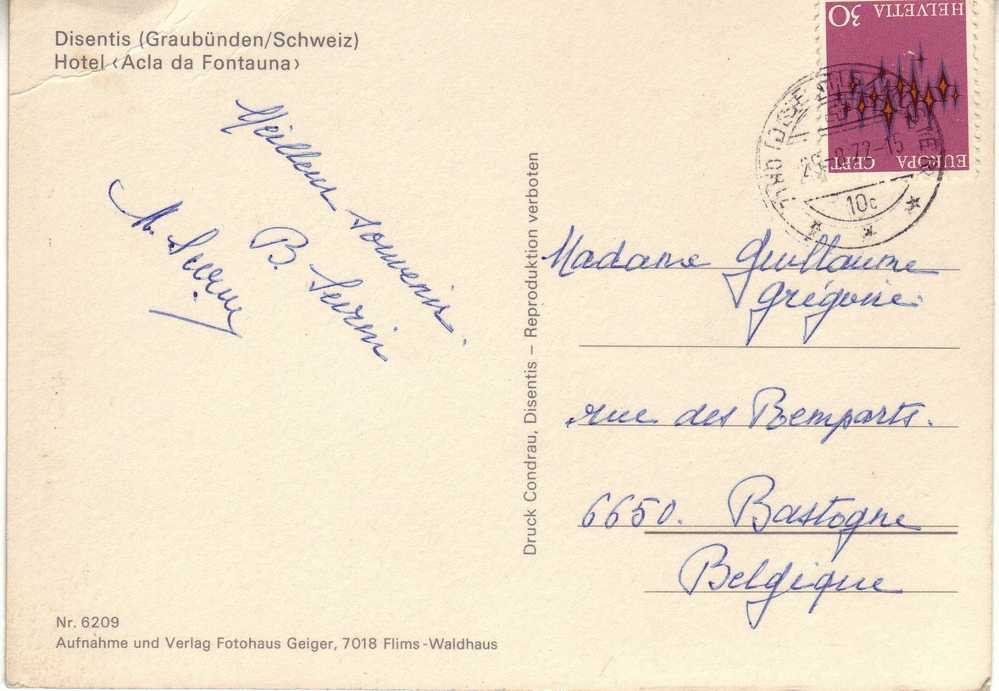 Disentis (Graubünden/Schweiz)
Hotel ‹Acla da Fontauna›
HELVETIA 30
EUROPA CEPT
10c
Meilleur souvenir.
B.
M.
Druck Condrau, Disentis – Reproduktion verboten
Madame Guillaume
Grégoire.
rue des Remparts.
6650. Bastogne
Belgique
Nr. 6209
Aufnahme und Verlag Fotohaus Geiger, 7018 Flims-Waldhaus